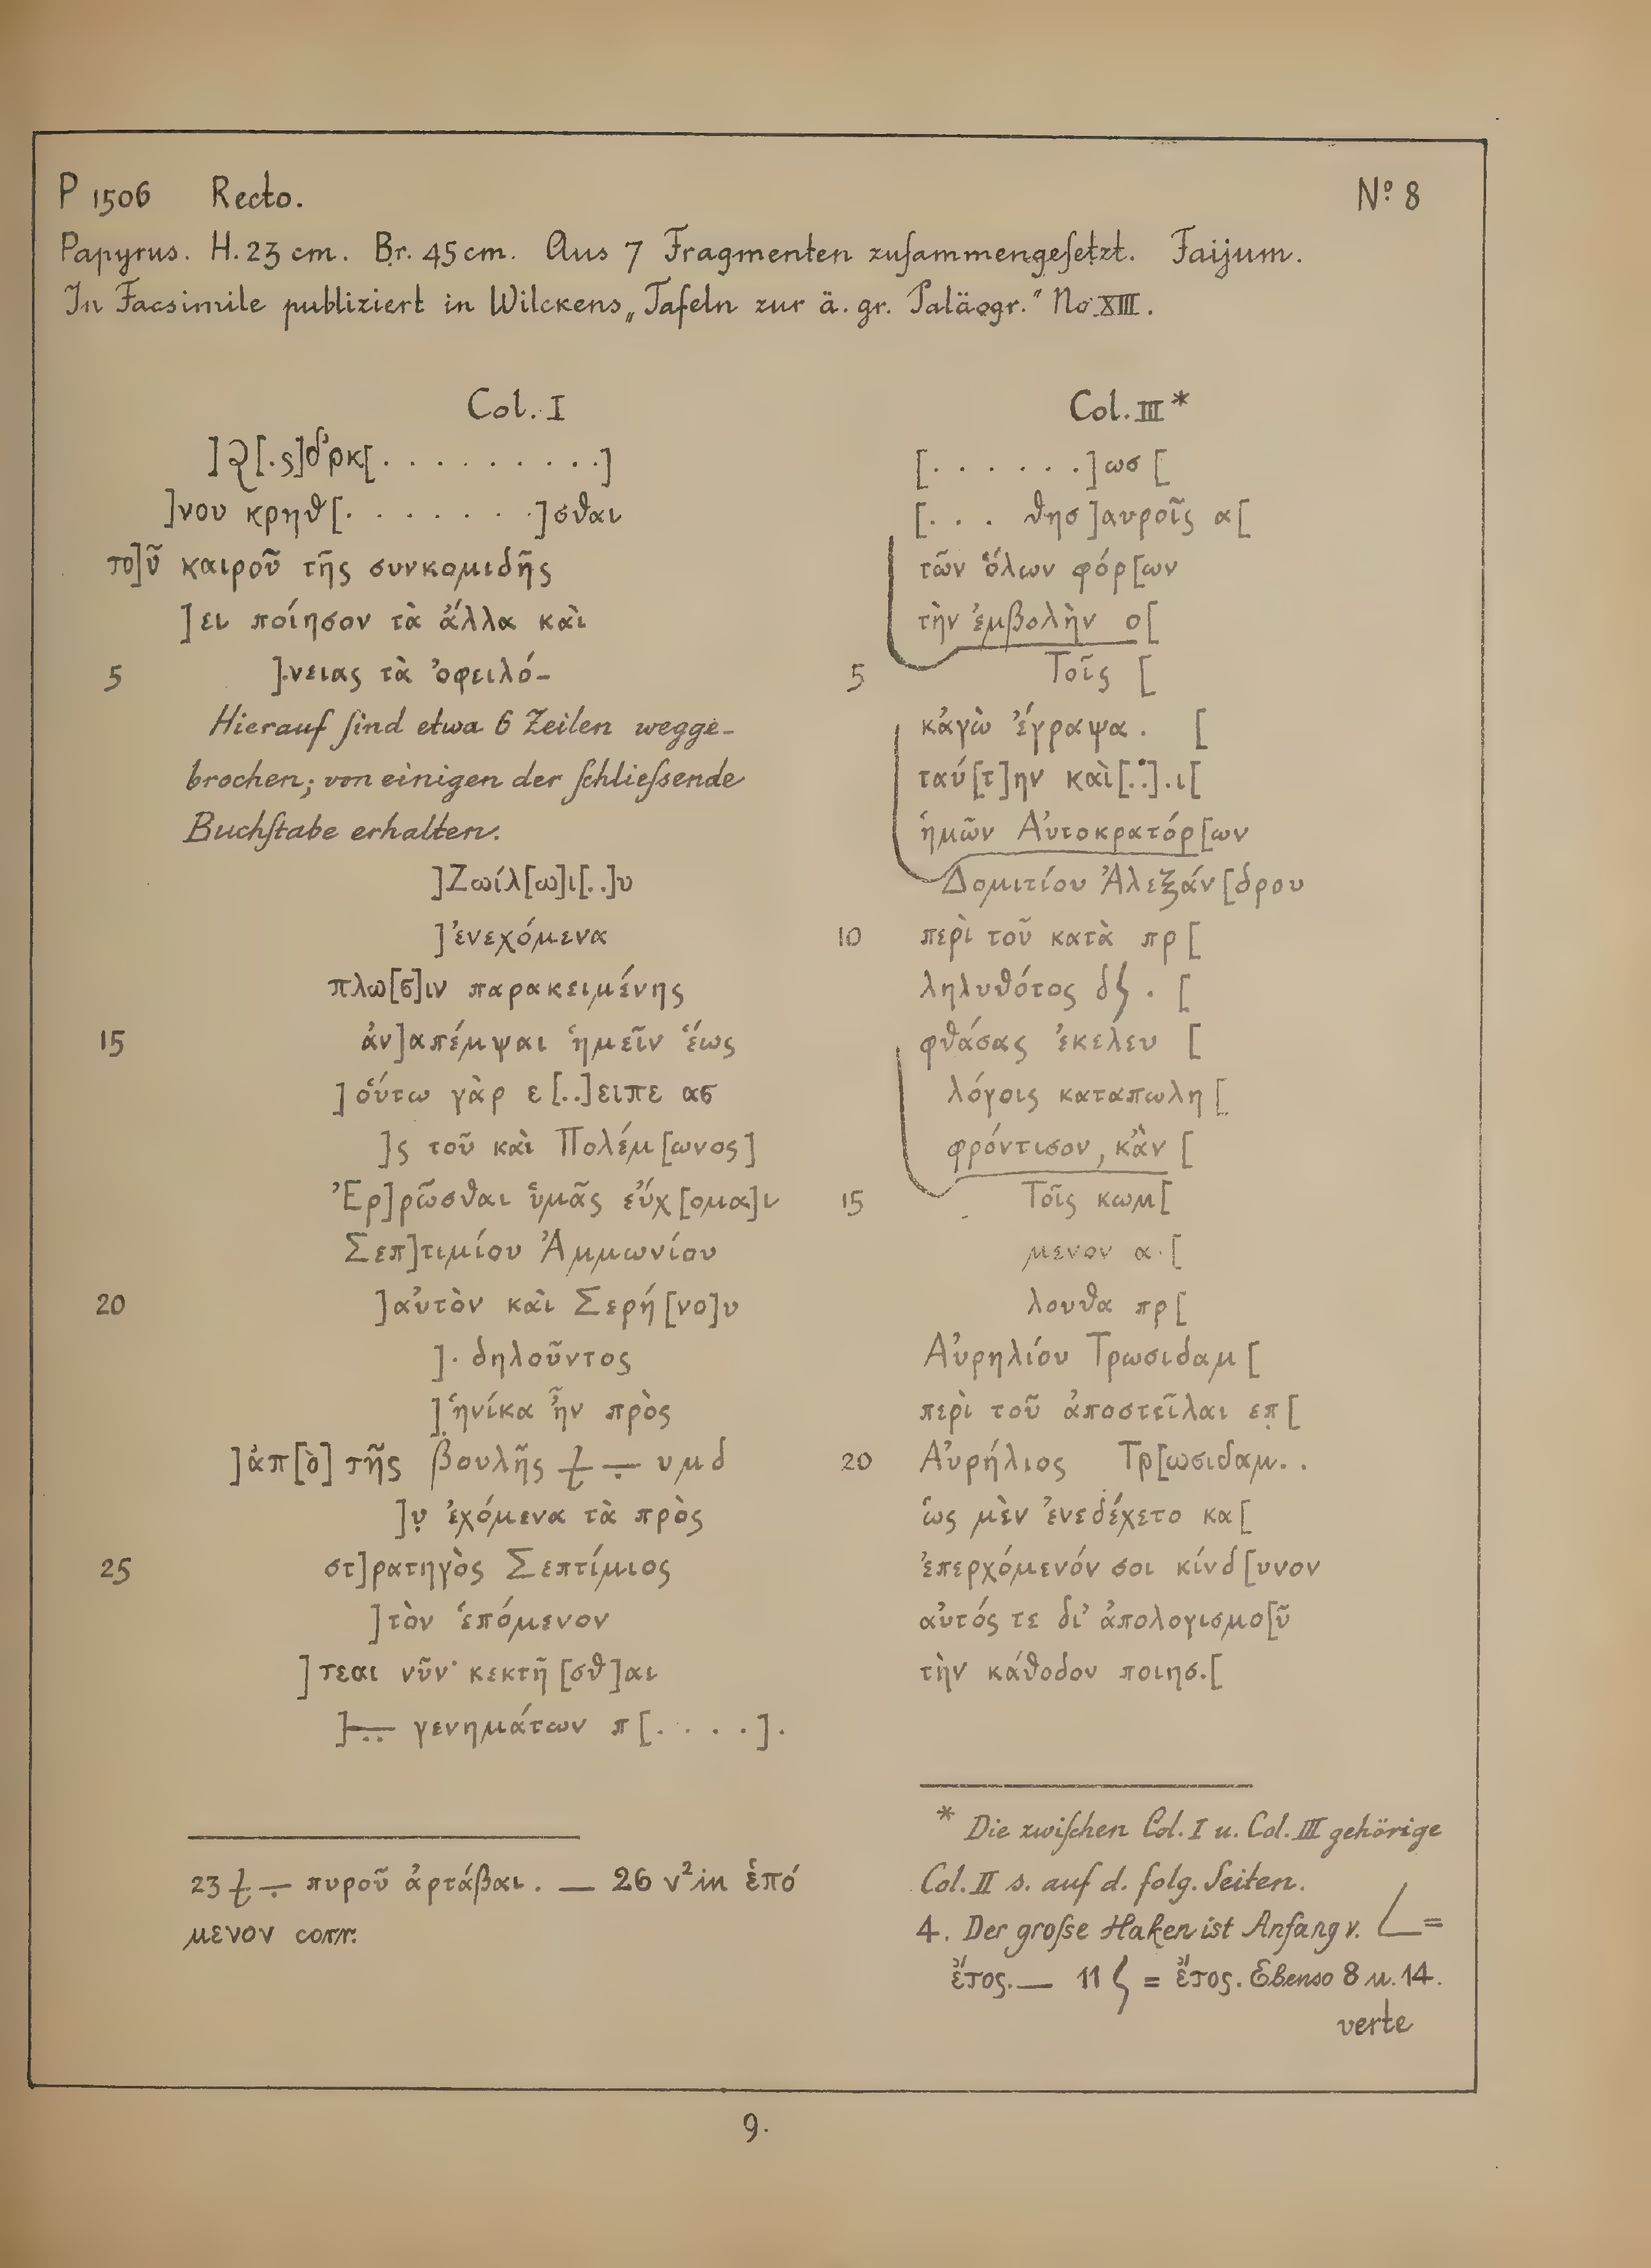 P 1506 Recto. Nº 8
Papyrus. H. 23 cm. Br. 45 cm. Aus 7 Fragmenten zuſammengeſetzt. Faijum.
In Facsimile publiziert in Wilckens „Tafeln zur ä. gr. Paläogr.“ No XIII.
Col. I
]νου κρηθ[. . . . . . . .]σθαι
το]ῦ καιροῦ τῆς συνκομιδῆς
]ει ποίησον τὰ ἄλλα καὶ
5 ].νειας τὰ ὀφειλό-
Hierauf ſind etwa 6 Zeilen wegge-
brochen; von einigen der ſchlieſsende
Buchſtabe erhalten.
]Ζωίλ[ω]ι[..]υ
]ἐνεχόμενα
πλω[σ]ιν παρακειμένης
15 ἀν]απέμψαι ἡμεῖν ἕως
]οὕτω γὰρ ε[..]ειπε ασ
]ς τοῦ καὶ Πολέμ[ωνος]
Ἐρ]ρῶσθαι ὑμᾶς εὔχ[ομα]ι
Σεπ]τιμίου Ἀμμωνίου
20 ]αὐτὸν καὶ Σερή[νο]υ
]. δηλοῦντος
]ἡνίκα ἦν πρὸς
]ἀπ[ὸ] τῆς βουλῆς υμδ
]υ̣ ἐχόμενα τὰ πρὸς
25 στ]ρατηγὸς Σεπτίμιος
]τὸν ἑπόμενον
]τεαι νῦν κεκτῆ[σθ]αι
] γενημάτων π[. . . .].
23 πυροῦ ἀρτάβαι. — 26 ν² in ἑπό
μενον corr.
Col. III *
[. . . . . . .]ωσ[
[. . . θησ]αυροῖς α[
τῶν ὅλων φόρ[ων
τὴν ἐμβολὴν ο[
5 Τοῖς [
κἀγὼ ἔγραψα. [
ταύ[τ]ην καὶ[..].ι[
ἡμῶν Αὐτοκρατόρ[ων
Δομιτίου Ἀλεξάν[δρου
10 περὶ τοῦ κατὰ πρ[
ληλυθότος δϛ . [
φθάσας ἐκέλευ [
λόγοις καταπωλη[
φρόντισον, κἂν [
15 Τοῖς κωμ[
μενον α.[
λουθα πρ[
Αὐρηλίου Τρωσιδαμ[
περὶ τοῦ ἀποστεῖλαι επ̣[
20 Αὐρήλιος Τρ[ωσιδαμ. .
ὡς μὲν ἐνεδέχετο κα[
ἐπερχόμενόν σοι κίνδ[υνον
αὐτός τε δι’ ἀπολογισμο[ῦ
τὴν κάθοδον ποιησ.[
* Die zwiſchen Col. I u. Col. III gehörige
Col. II s. auf d. folg. Seiten.
4. Der groſse Haken iſt Anfang v. =
ἔτος. — 11 ϛ = ἔτος. Ebenso 8 u. 14.
verte
9.